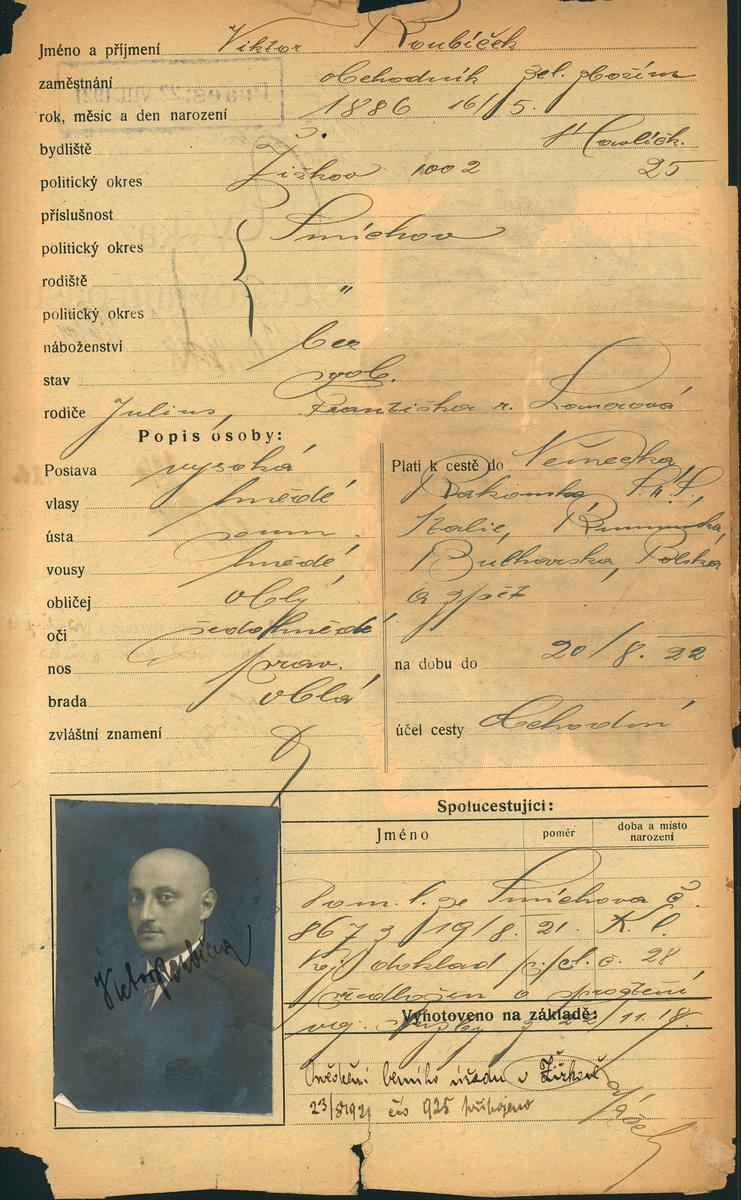 Jméno a příjmení Viktor Roubíček
zaměstnání obchodník zel. zbožím
rok, měsíc a den narození 1886 16/5.
bydliště Havlíčk.
politický okres Žižkov 1002 25
příslušnost
politický okres Smíchov
rodiště
politický okres "
náboženství bez
stav svob.
rodiče Julius, Františka r.
Popis osoby:
Postava vysoká
vlasy hnědé
ústa soum.
vousy hnědé
obličej oblý
oči šedohnědé
nos prav.
brada oblá
zvláštní znamení
Platí k cestě do Německa,
Rakouska,
Italie, Rumunska,
Bulharska, Polska
a zpět
na dobu do 20/8. 22
účel cesty obchodní
Spolucestující:
Jméno poměr doba a místo narození
Dom. l. ze Smíchova č.
867 z /19/8. 21. K. l.
kej doklad p. čl. č. 28
předložen o
Vyhotoveno na základě:
Osvědčení berního úřadu v Žižkově
23/8 1921 čís 925 připojeno
Victor Roubíček